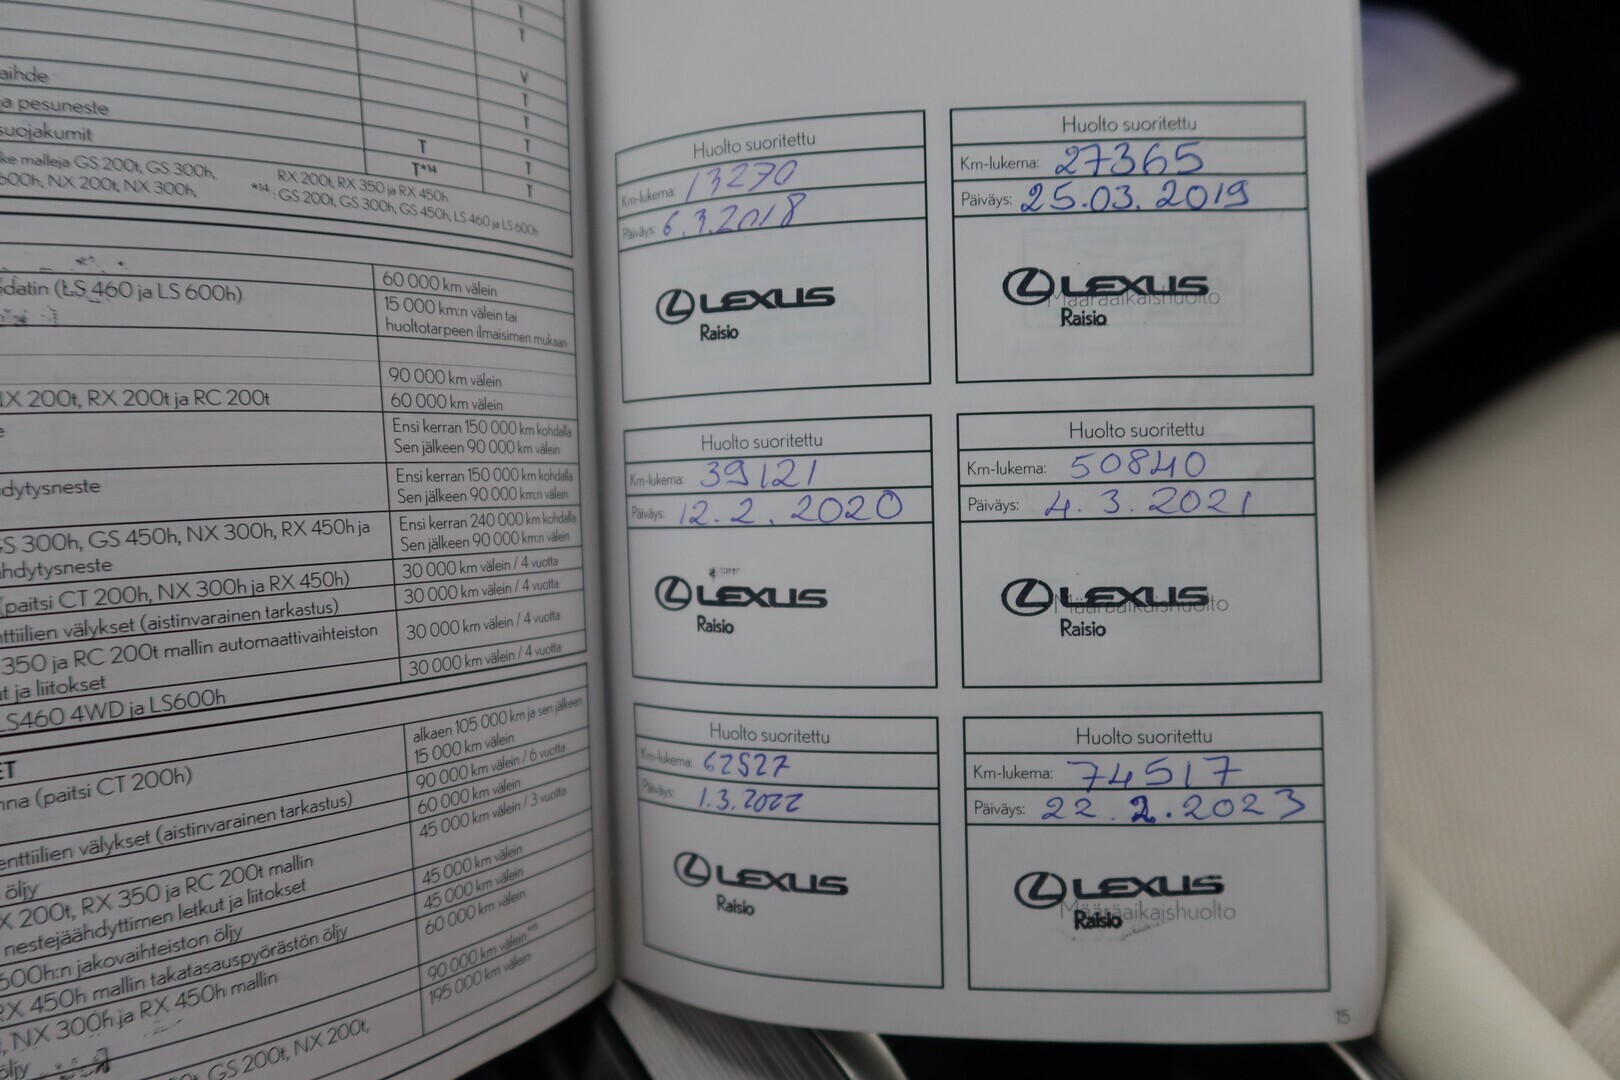 T
T
aihde V
a pesuneste T
T
suojakumit T T
ke malleja GS 200t, GS 300h, T*14 T
600h, NX 200t, NX 300h, RX 200t, RX 350 ja RX 450h T
*14 : GS 200t, GS 300h, GS 450h, LS 460 ja LS 600h
60 000 km välein
datin (LS 460 ja LS 600h) 15 000 km:n välein tai
huoltotarpeen ilmaisimen mukaan
90 000 km välein
NX 200t, RX 200t ja RC 200t 60 000 km välein
e Ensi kerran 150 000 km kohdalla
Sen jälkeen 90 000 km välein
dytysneste Ensi kerran 150 000 km kohdalla
Sen jälkeen 90 000 km:n välein
GS 300h, GS 450h, NX 300h, RX 450h ja Ensi kerran 240 000 km kohdalla
hdytysneste Sen jälkeen 90 000 km:n välein
(paitsi CT 200h, NX 300h ja RX 450h) 30 000 km välein / 4 vuotta
nttiilien välykset (aistinvarainen tarkastus) 30 000 km välein / 4 vuotta
350 ja RC 200t mallin automaattivaihteiston 30 000 km välein / 4 vuotta
ut ja liitokset
LS460 4WD ja LS600h 30 000 km välein / 4 vuotta
ET alkaen 105 000 km ja sen jälkeen
nna (paitsi CT 200h) 15 000 km välein
90 000 km välein / 6 vuotta
enttiilien välykset (aistinvarainen tarkastus) 60 000 km välein
öljy 45 000 km välein / 3 vuotta
X 200t, RX 350 ja RC 200t mallin
nestejäähdyttimen letkut ja liitokset 45 000 km välein
600h:n jakovaihteiston öljy 45 000 km välein
RX 450h mallin takatasauspyörästön öljy 60 000 km välein
, NX 300h ja RX 450h mallin 90 000 km välein
öljy 195 000 km välein
GS 200t, NX 200t,
Huolto suoritettu
Km-lukema: 13270
Päiväys: 6.3.2018
LEXUS
Raisio
Huolto suoritettu
Km-lukema: 27365
Päiväys: 25.03.2019
LEXUS
Määräaikaishuolto
Raisio
Huolto suoritettu
Km-lukema: 39121
Päiväys: 12.2.2020
LEXUS
Raisio
Huolto suoritettu
Km-lukema: 50840
Päiväys: 4.3.2021
LEXUS
Määräaikaishuolto
Raisio
Huolto suoritettu
Km-lukema: 62527
Päiväys: 1.3.2022
LEXUS
Raisio
Huolto suoritettu
Km-lukema: 74517
Päiväys: 22.2.2023
LEXUS
Määräaikaishuolto
Raisio
15